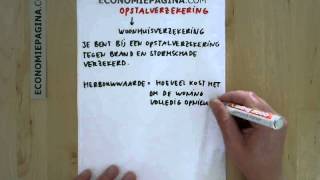 ECONOMIEPAGINA.COM
OPSTALVERZEKERING
WOONHUISVERZEKERING
JE BENT BIJ EEN OPSTALVERZEKERING
TEGEN BRAND EN STORMSCHADE
VERZEKERD.
HERBOUWWAARDE = HOEVEEL KOST HET
OM DE WONING
VOLLEDIG OPNIEU